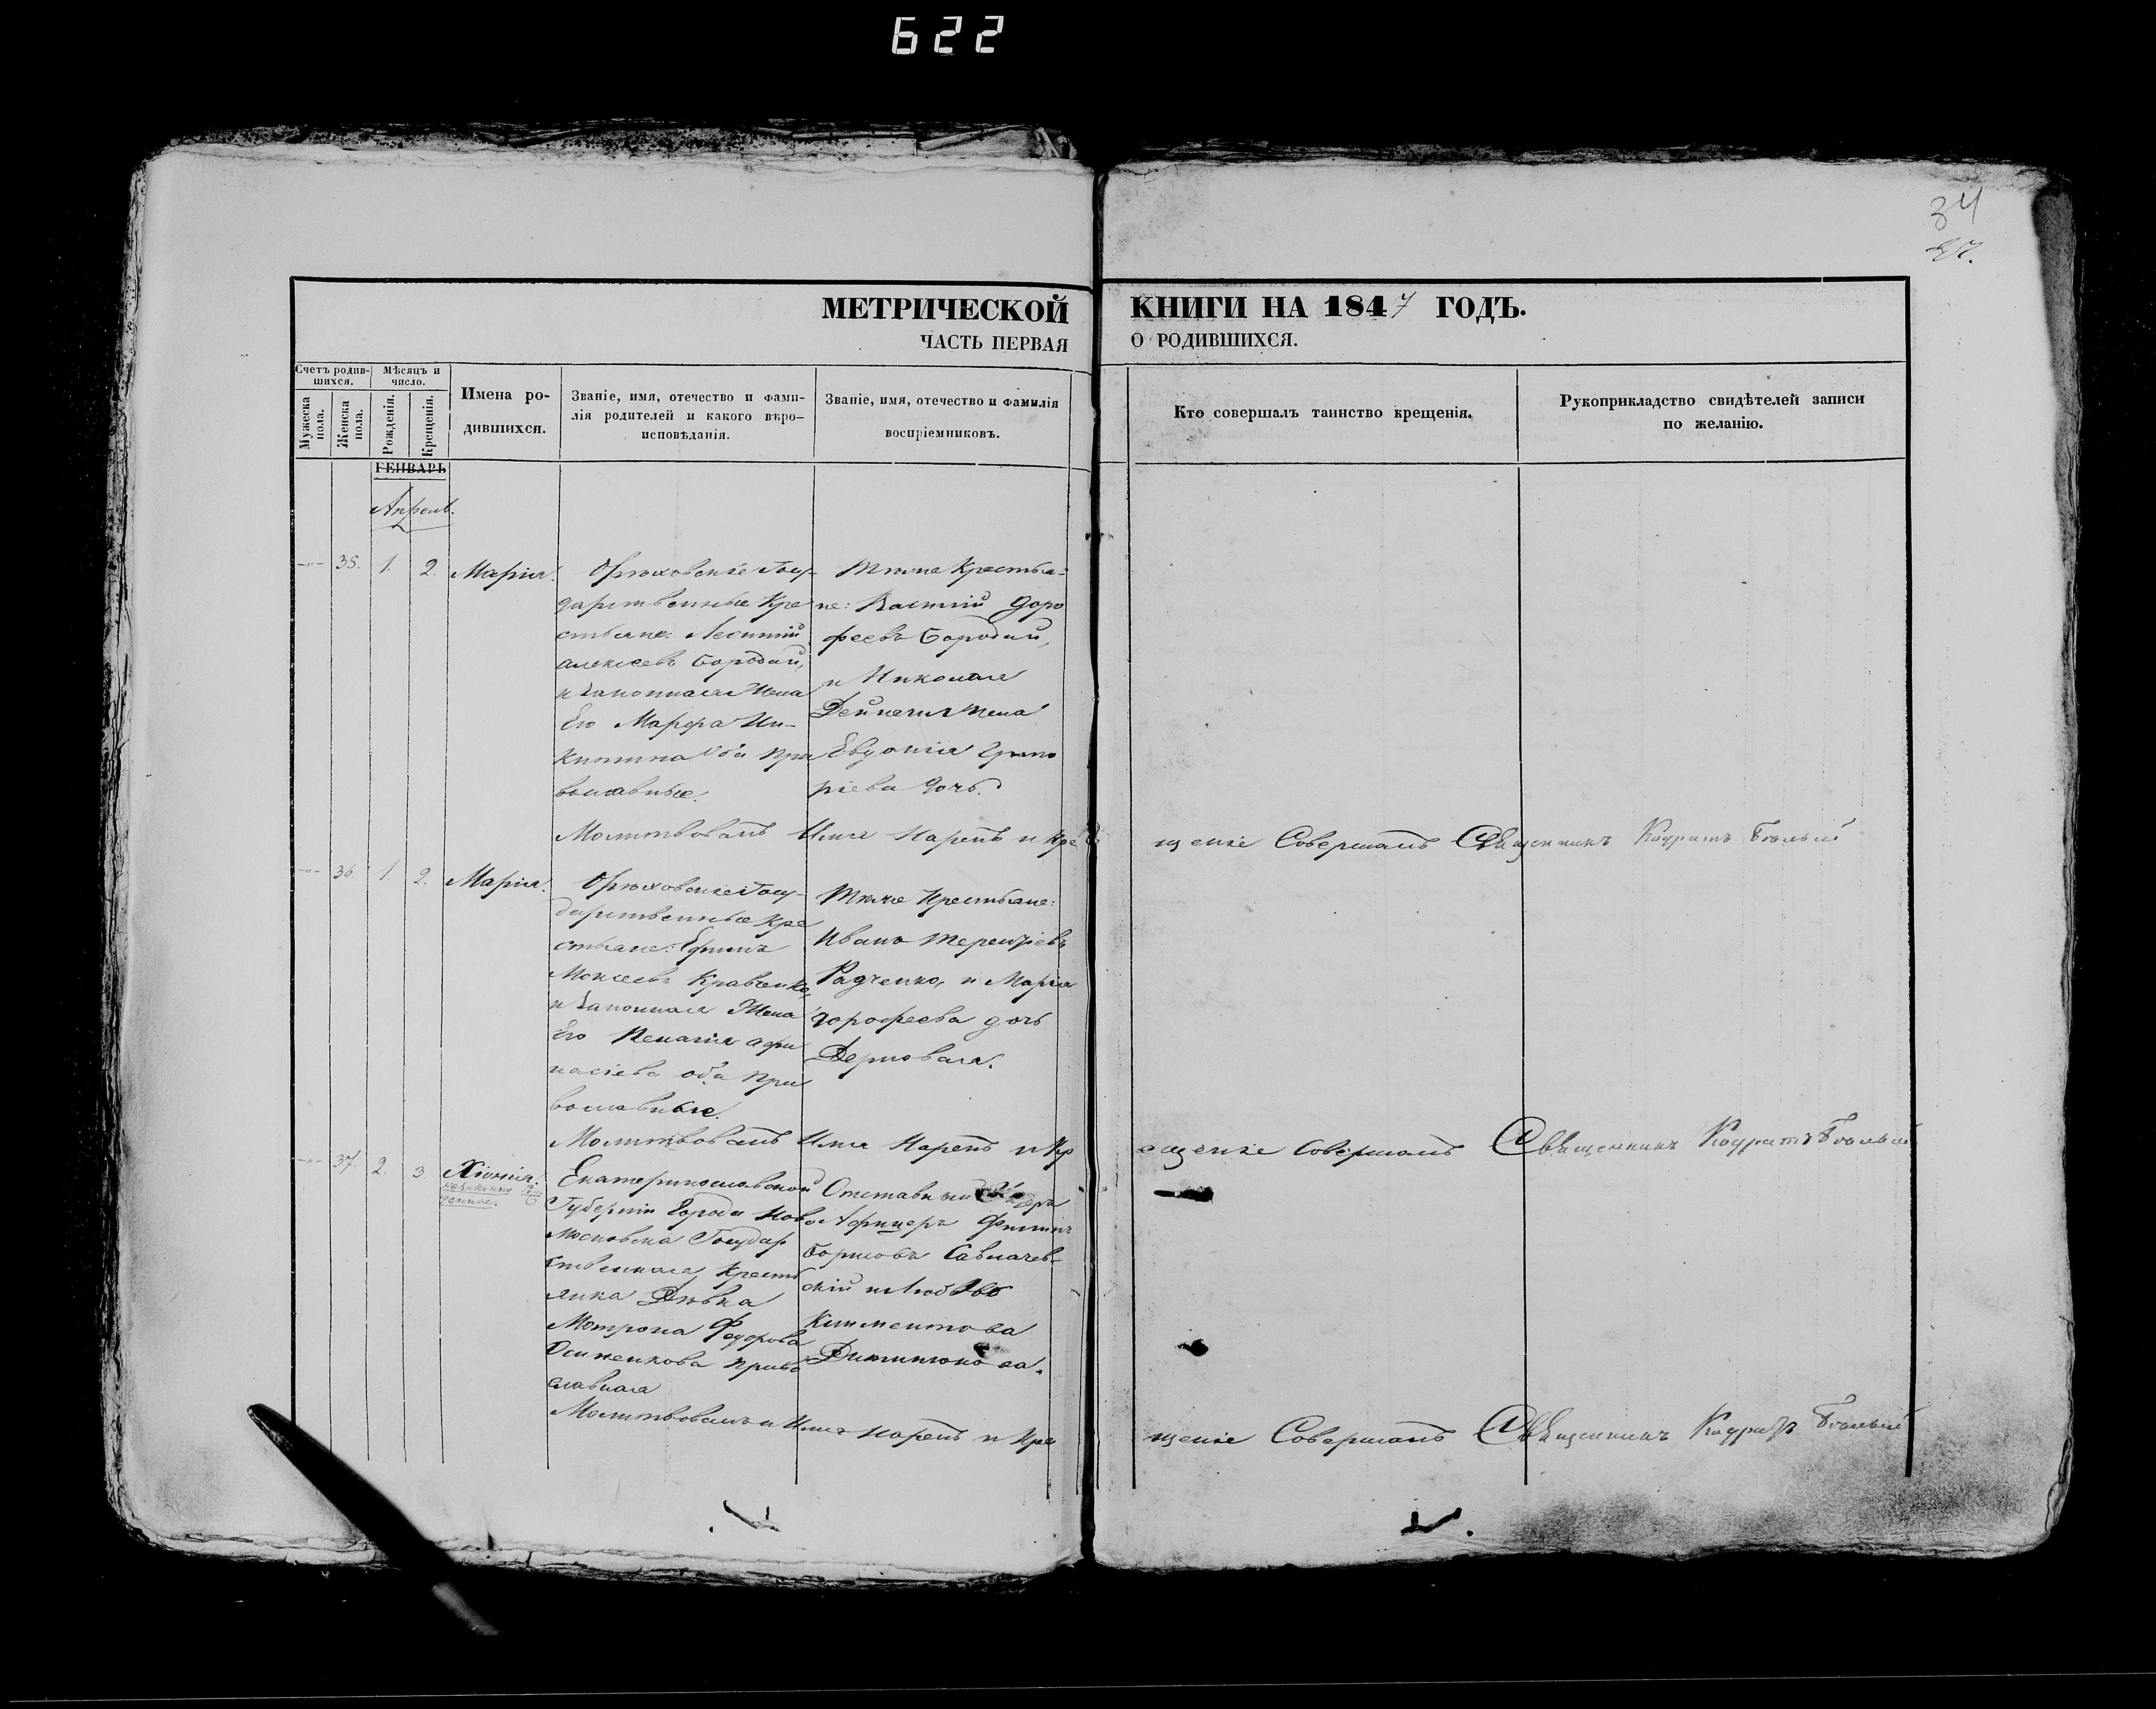 622
34
27.
МЕТРИЧЕСКОЙ КНИГИ НА 1847 ГОДЪ.
ЧАСТЬ ПЕРВАЯ О РОДИВШИХСЯ.
Счетъ родив-
шихся.
Мужеска
пола.
Женска
пола.
Мѣсяцъ и
число.
Рожденія.
Крещенія.
Имена ро-
дившихся.
Званіе, имя, отечество и фами-
лія родителей и какого вѣро-
исповѣданія.
Званіе, имя, отечество и фамилія
воспріемниковъ.
Кто совершалъ таинство крещенія.
Рукоприкладство свидѣтелей записи
по желанію.
ГЕНВАРЬ
Апрель.
35. 1. 2. Марія.
Орѣховскіе Госу-
дарственные Кре
стьяне: Леонтій
Алексѣевъ Бородай,
и законная Жена
Его Марфа Ни-
китина оба пра
вославные.
Тѣже Крестья-
не: Василій Доро
феевъ Бородай,
и Николая
жена
Евдокія Григо
ріева дочь.
Молитвовалъ Имя Нарекъ и Кре
щеніе Совершалъ Священникъ Кодратъ Бѣлый
36. 1. 2. Марія.
Орѣховскіе Госу-
дарственные Кре
стьяне: Ефимъ
Моисеевъ Кравченко,
и законная Жена
Его Афа
насіева оба пра
вославные.
Тѣже Крестьяне:
Иванъ Терентіевъ
Радченко, и Марія
Дорофеева дочь
Молитвовалъ Имя Нарекъ и Кр
ещеніе Совершалъ Священникъ Кодратъ Бѣлый
37. 2. 3. Хіонія.
незаконно рож
денное.
Екатеринославской
Губерніи Города Ново
московска Государ
ственная Кресть
янка Дѣвка
Мотрона Федорова
Осипенкова Право
славная
Отставный
Афицеръ Филипъ
Борисовъ
скій и Любовь
Климентова
Молитвовалъ и Имя Нарекъ и Кре
щеніе Совершалъ Священникъ Кодратъ Бѣлый